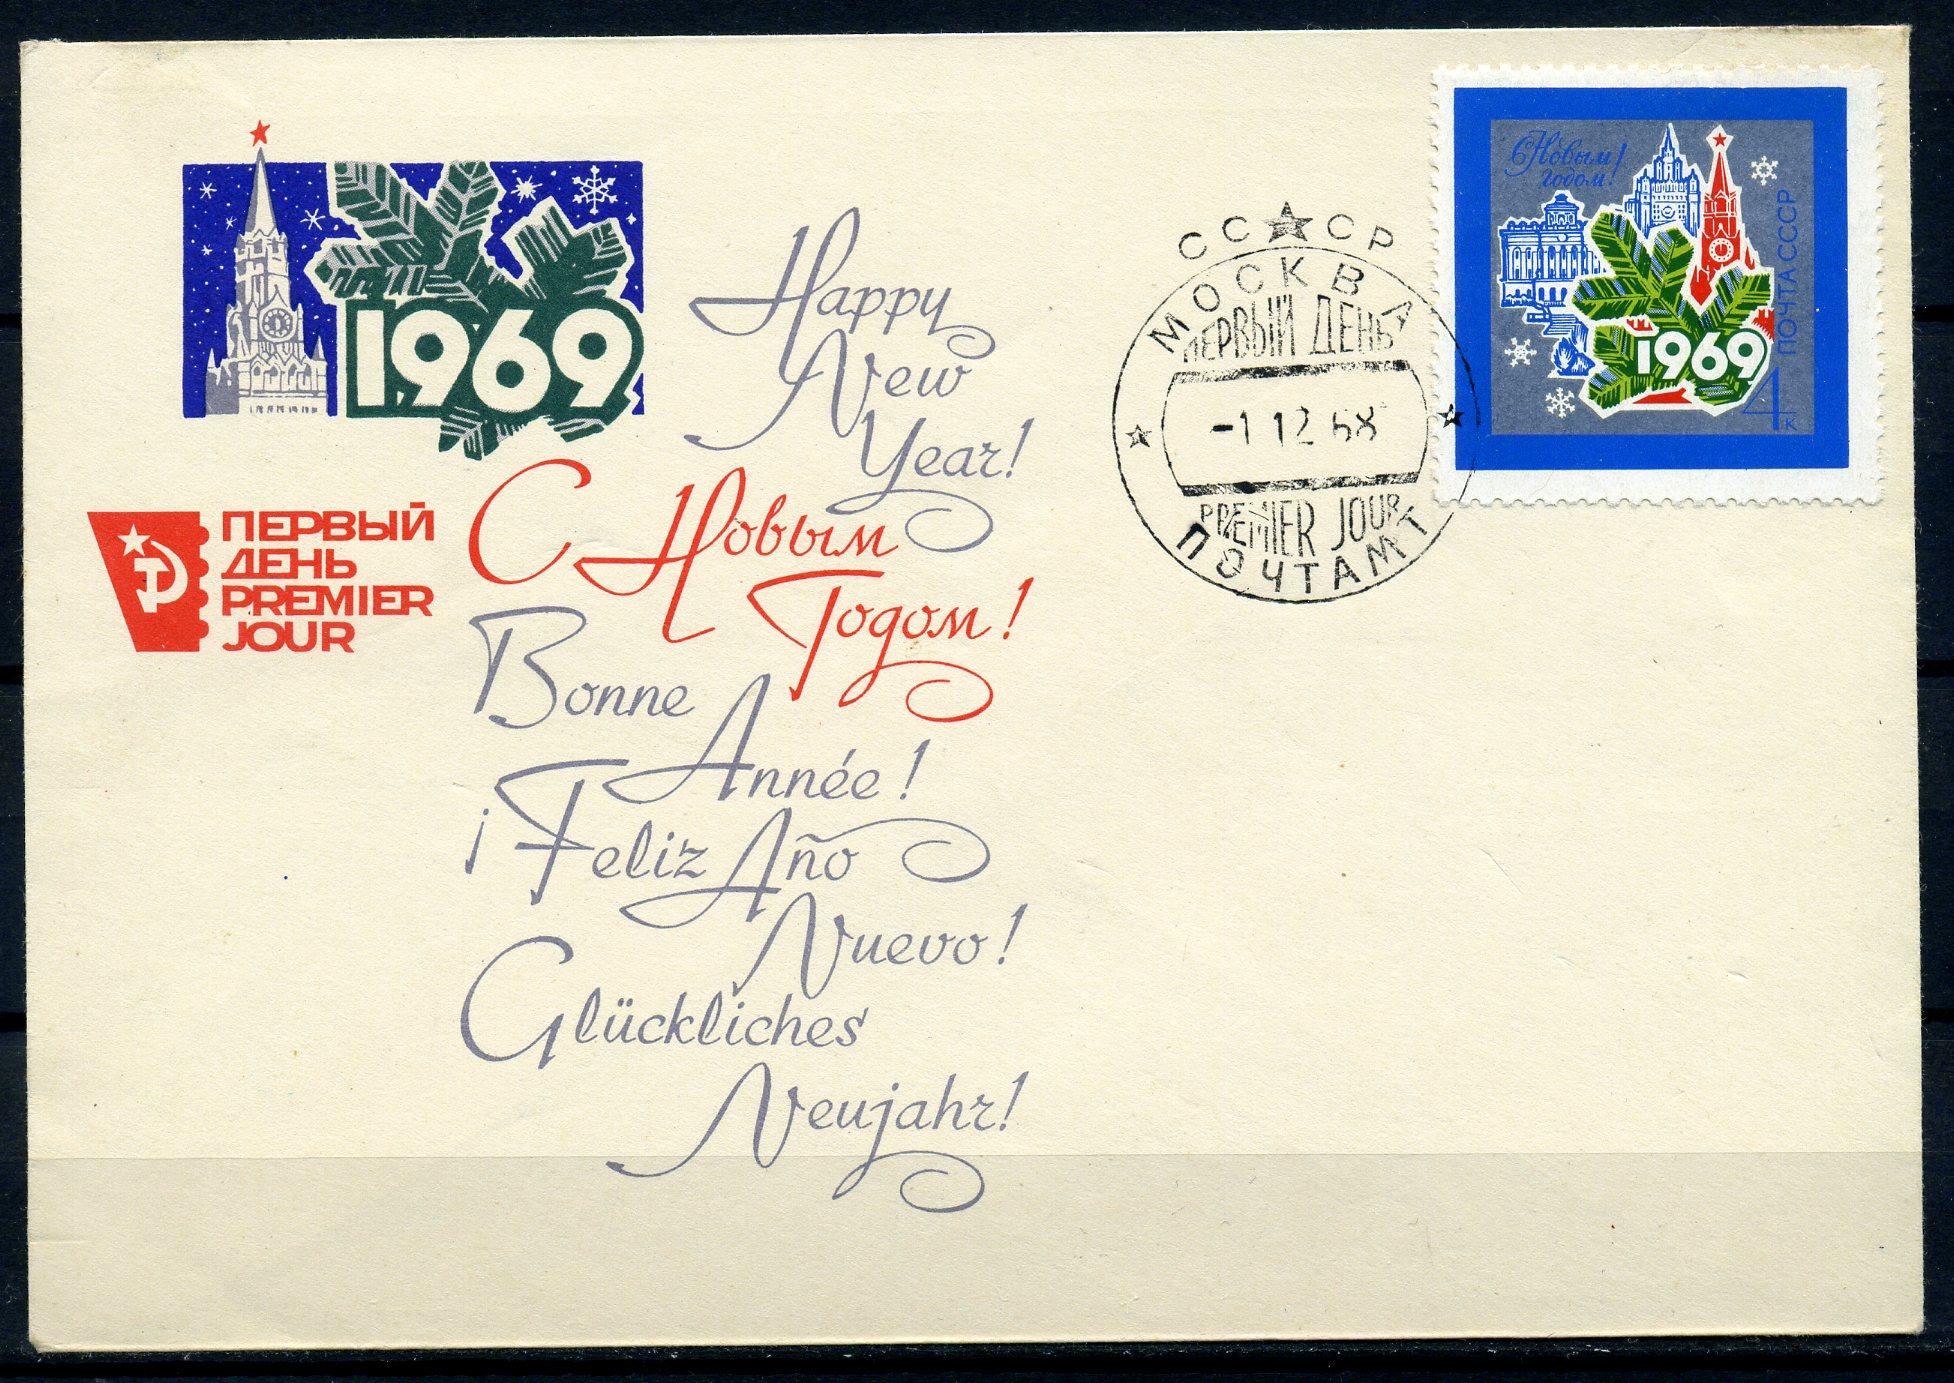 1969
Happy
New
Year!
С Новым
Годом!
Bonne
Année!
¡Feliz Año
Nuevo!
Glückliches
Neujahr!
ПЕРВЫЙ
ДЕНЬ
PREMIER
JOUR
СССР
МОСКВА
ПЕРВЫЙ ДЕНЬ
-1 12 68
PREMIER JOUR
ПОЧТАМТ
С Новым
годом!
ПОЧТА СССР
1969
4к